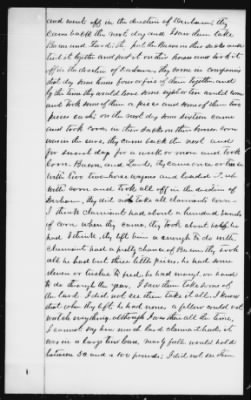 and went off in the direction of Durham, they
came back the next day and I saw them take
Bacon and Lard, they put the Bacon in their sacks and
tied it together and put it on their horses and took it
off in the direction of Durham, they came in companies
that day some times four or five of them together and
by the time they would leave some eight or ten would come
and took some of them a piece and some of them two
pieces each, on the next day some sixteen came
and took corn in their sacks on their horses, corn
was in the ears, they came back the next and
for several day for a week or more and took
corn, Bacon, and Lard, they came once or twice
with five two horse wagons and loaded
with corn and took all off in the direction of
Durham, they did not take all claimants corn
I think claimant had about a hundred barrels
of corn when they came, they took about
had I think, they left him a enough to do with,
claimant had a pretty chance of Bacon they took
all he had but three little pieces, he had some
eleven or twelve to feed, he had many on hand
to do through the year, I saw them take some of
the lard I did not see them take it all, I know
that when they left he had none a fellow could not
watch everything although I was there all the time,
I cannot say how much lard claimant had, it
was in a large tin can, nearly full would hold
between 50 and a 100 pounds, I did not see them